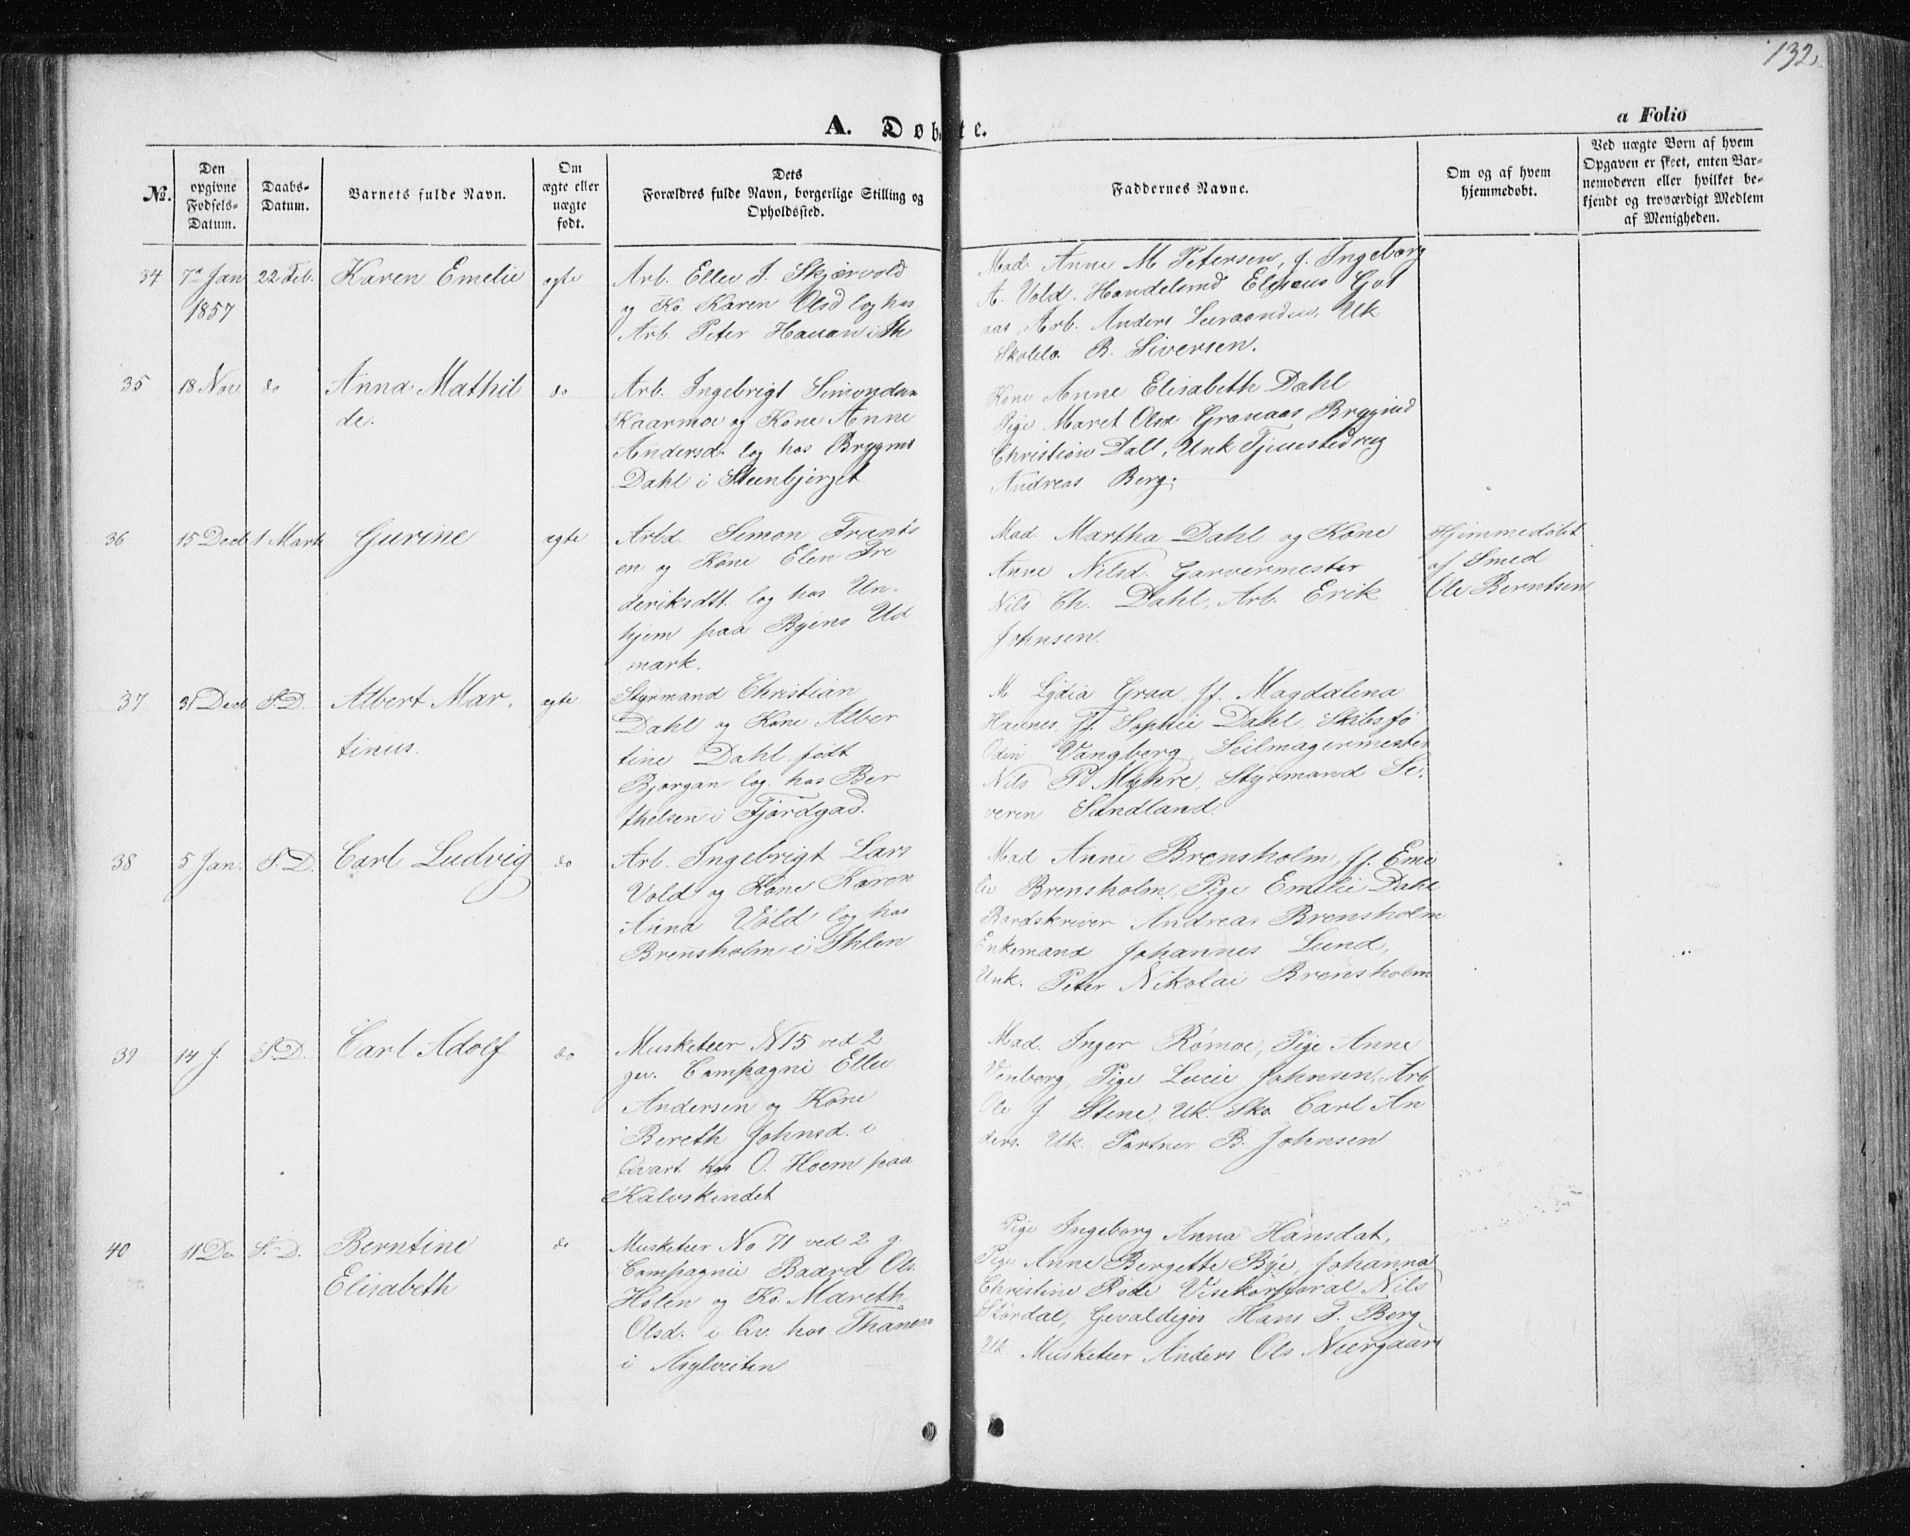 132
A. Døbte.
a Folio
№.
Den opgivne Fødsels-Datum.
Daabs-Datum.
Barnets fulde Navn.
Om ægte eller uægte født.
Dets Forældres fulde Navn, borgerlige Stilling og Opholdssted.
Faddernes Navne.
Om og af hvem hjemmedøbt.
Ved uægte Børn af hvem Opgaven er skeet, enten Barnemoderen eller hvilket bekjendt og troværdigt Medlem af Menigheden.
34
7de Jan
1857
22 Feb.
Karen Emelie
egte
Arb. Ellev J. Skjærvold
og Ko. Karen Olsd log has
Arb. Peter Hauan i Ih
Mad. Anne M Petersen, J. Ingeborg
A. Vold. Handelsmd
aas, Arb. Anders Uk
B. Siversen.
35
18 Nov
do
Anna Mathil
de.
do
Arb. Ingebrigt Simondsen
Kaarmoe og Kone Anne
Andersd. log has Brygms
Dahl i Steenbjerget
Kone Anne Elisabeth Dahl
Pige Maret Olsd Granaas
Christian Dall, Unk
Andreas Berg.
36
15 Decb
1 Marts
Gurine
egte
Arbd. Simon Frants
en og Kone Elen Fre
deriksdtt. log has Un-
hjem paa Byens Ud
mark.
Mad. Martha Dahl og Kone
Anne Nilsd. Garvermester
Nils Ch. Dahl, Arb. Erik
Johnsen.
Hjemmedøbt
af Smed
Ole Berntsen
37
31 Decb
S. D.
Albert Mar-
tinus.
egte
Styrmand Christian
Dahl og Kone Alber
tine Dahl født
Bjørgan log. has Ber
thelsen i Fjordgad.
M. Lydia Graa, Jf. Magdalena
Havnes, Jf. Sophie Dahl, Skibsfø
Odin Vangberg, Seilmagermester
Nils P Myhre, Styrmand Se-
verin Sundland
38
5 Jan.
S. D.
Carl Ludvig
do
Arb. Ingebrigt Lars
Vold og Kone Karen
Anna Vold log has
Brensholm i Ihlen
Mad Anne Brensholm, Jf. Emi
lie Brensholm, Pige Emilie Dahl
Andreas Brensholm
Enkemand Johannes Lund,
Unk. Peter Nikolai Brensholm
39
14 J.
S. D.
Carl Adolf
do
Musketeer N 15 ved 2
gev. Compagni Ellev
Andersen og Kone
Bereth Johnsd. i
Qvart has O. Hoem paa
Kalvskindet
Mad. Inger Rømoe, Pige Anne
Venberg, Pige Lucie Johnsen, Arb
Ole J. Stene, Uk. Sko. Carl An
ders. Uk. Portner B. Johnsen
40
11 De
S. D.
Berntine
Elisabeth
do
Musketeer No 71 ved 2 g.
Compagnie Baard Ols.
Holen og Ko. Mareth
Olsd. i Qv. has Thanem
i Asylveiten
Pige Ingeborg Anna Hansdat,
Pige Anne Bergette Bye, Johanna
Christine Rode Visekorporal Nils
Størdal, Gevaldiger Hans J. Berg
Uk. Musketeer Anders Ols Neergaard